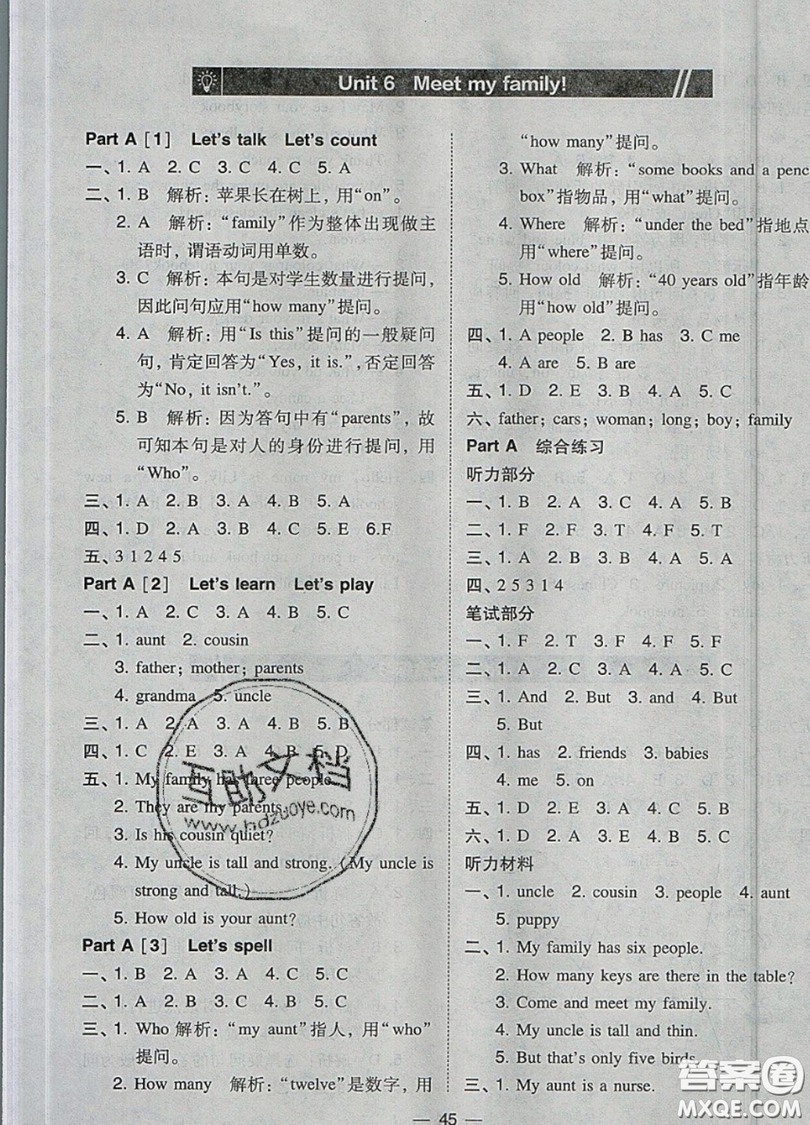 Unit 6 Meet my family!
Part A [1] Let's talk Let's count
一、1. A 2. C 3. C 4. C 5. A
二、1. B 解析：苹果长在树上，用“on”。
2. A 解析：“family”作为整体出现做主
语时，谓语动词用单数。
3. C 解析：本句是对学生数量进行提问，
因此问句应用“how many”提问。
4. A 解析：用“Is this”提问的一般疑问
句，肯定回答为“Yes, it is.”，否定回答
为“No, it isn't.”。
5. B 解析：因为答句中有“parents”，故
可知本句是对人的身份进行提问，用
“Who”。
三、1. A 2. B 3. A 4. B 5. A
四、1. D 2. A 3. B 4. C 5. E 6.F
五、3 1 2 4 5
Part A [2] Let's learn Let's play
一、1. A 2. C 3. A 4. B 5. C
二、1. aunt 2. cousin
3. father; mother; parents
4. grandma 5. uncle
三、1. A 2. A 3. A 4. B 5. B
四、1. C 2. E 3. A 4. B 5. D
五、1. My family has three people.
2. They are my parents.
3. Is his cousin quiet?
4. My uncle is tall and strong. (My uncle is
strong and tall.)
5. How old is your aunt?
Part A [3] Let's spell
一、1. B 2. A 3. A 4. A 5. C
二、1. A 2. A 3. C 4. B 5. C
三、1. Who 解析：“my aunt”指人，用“who”
提问。
2. How many 解析：“twelve”是数字，用
“how many”提问。
3. What 解析：“some books and a penc
box”指物品，用“what”提问。
4. Where 解析：“under the bed”指地点
用“where”提问。
5. How old 解析：“40 years old”指年龄
用“how old”提问。
四、1. A people 2. B has 3. C me
4. A are 5. B are
五、1. D 2. E 3. B 4. A 5. C
六、father; cars; woman; long; boy; family
Part A 综合练习
听力部分
一、1. B 2. A 3. C 4. A 5. B
二、1. F 2. F 3. T 4. F 5. T
三、1. A 2. B 3. A 4. A 5. B
四、2 5 3 1 4
笔试部分
一、1. F 2. T 3. F 4. F 5. F
二、1. A 2. C 3. A 4. A 5. C
三、1. And 2. But 3. And 4. But
5. But
四、1. has 2. friends 3. babies
4. me 5. on
五、1. D 2. E 3. A 4. C 5. B
六、1. D 2. A 3. C 4. B 5. E
听力材料
一、1. uncle 2. cousin 3. people 4. aunt
5. puppy
二、1. My family has six people.
2. How many keys are there in the table?
3. Come and meet my family.
4. My uncle is tall and thin.
5. But that's only five birds.
三、1. My aunt is a nurse.
— 45 —
互助文档
www.hdzuoye.com
答案圈
MXQE.COM